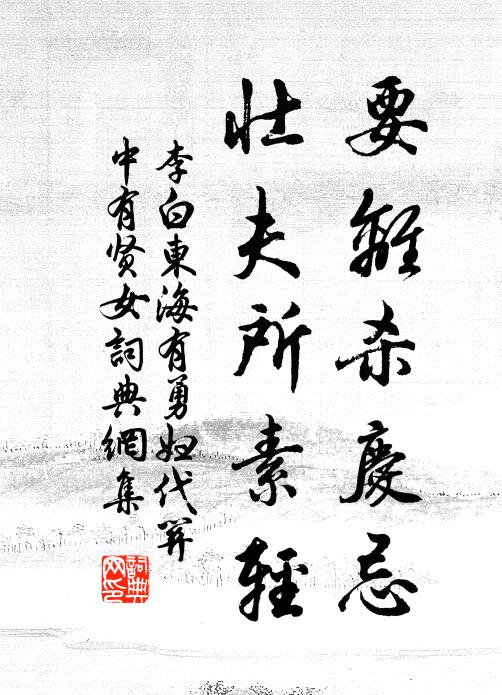 要離杀慶忌
壮夫所素輕
李白東海有勇妇代関
中有贤女詞典網集
詞典网印